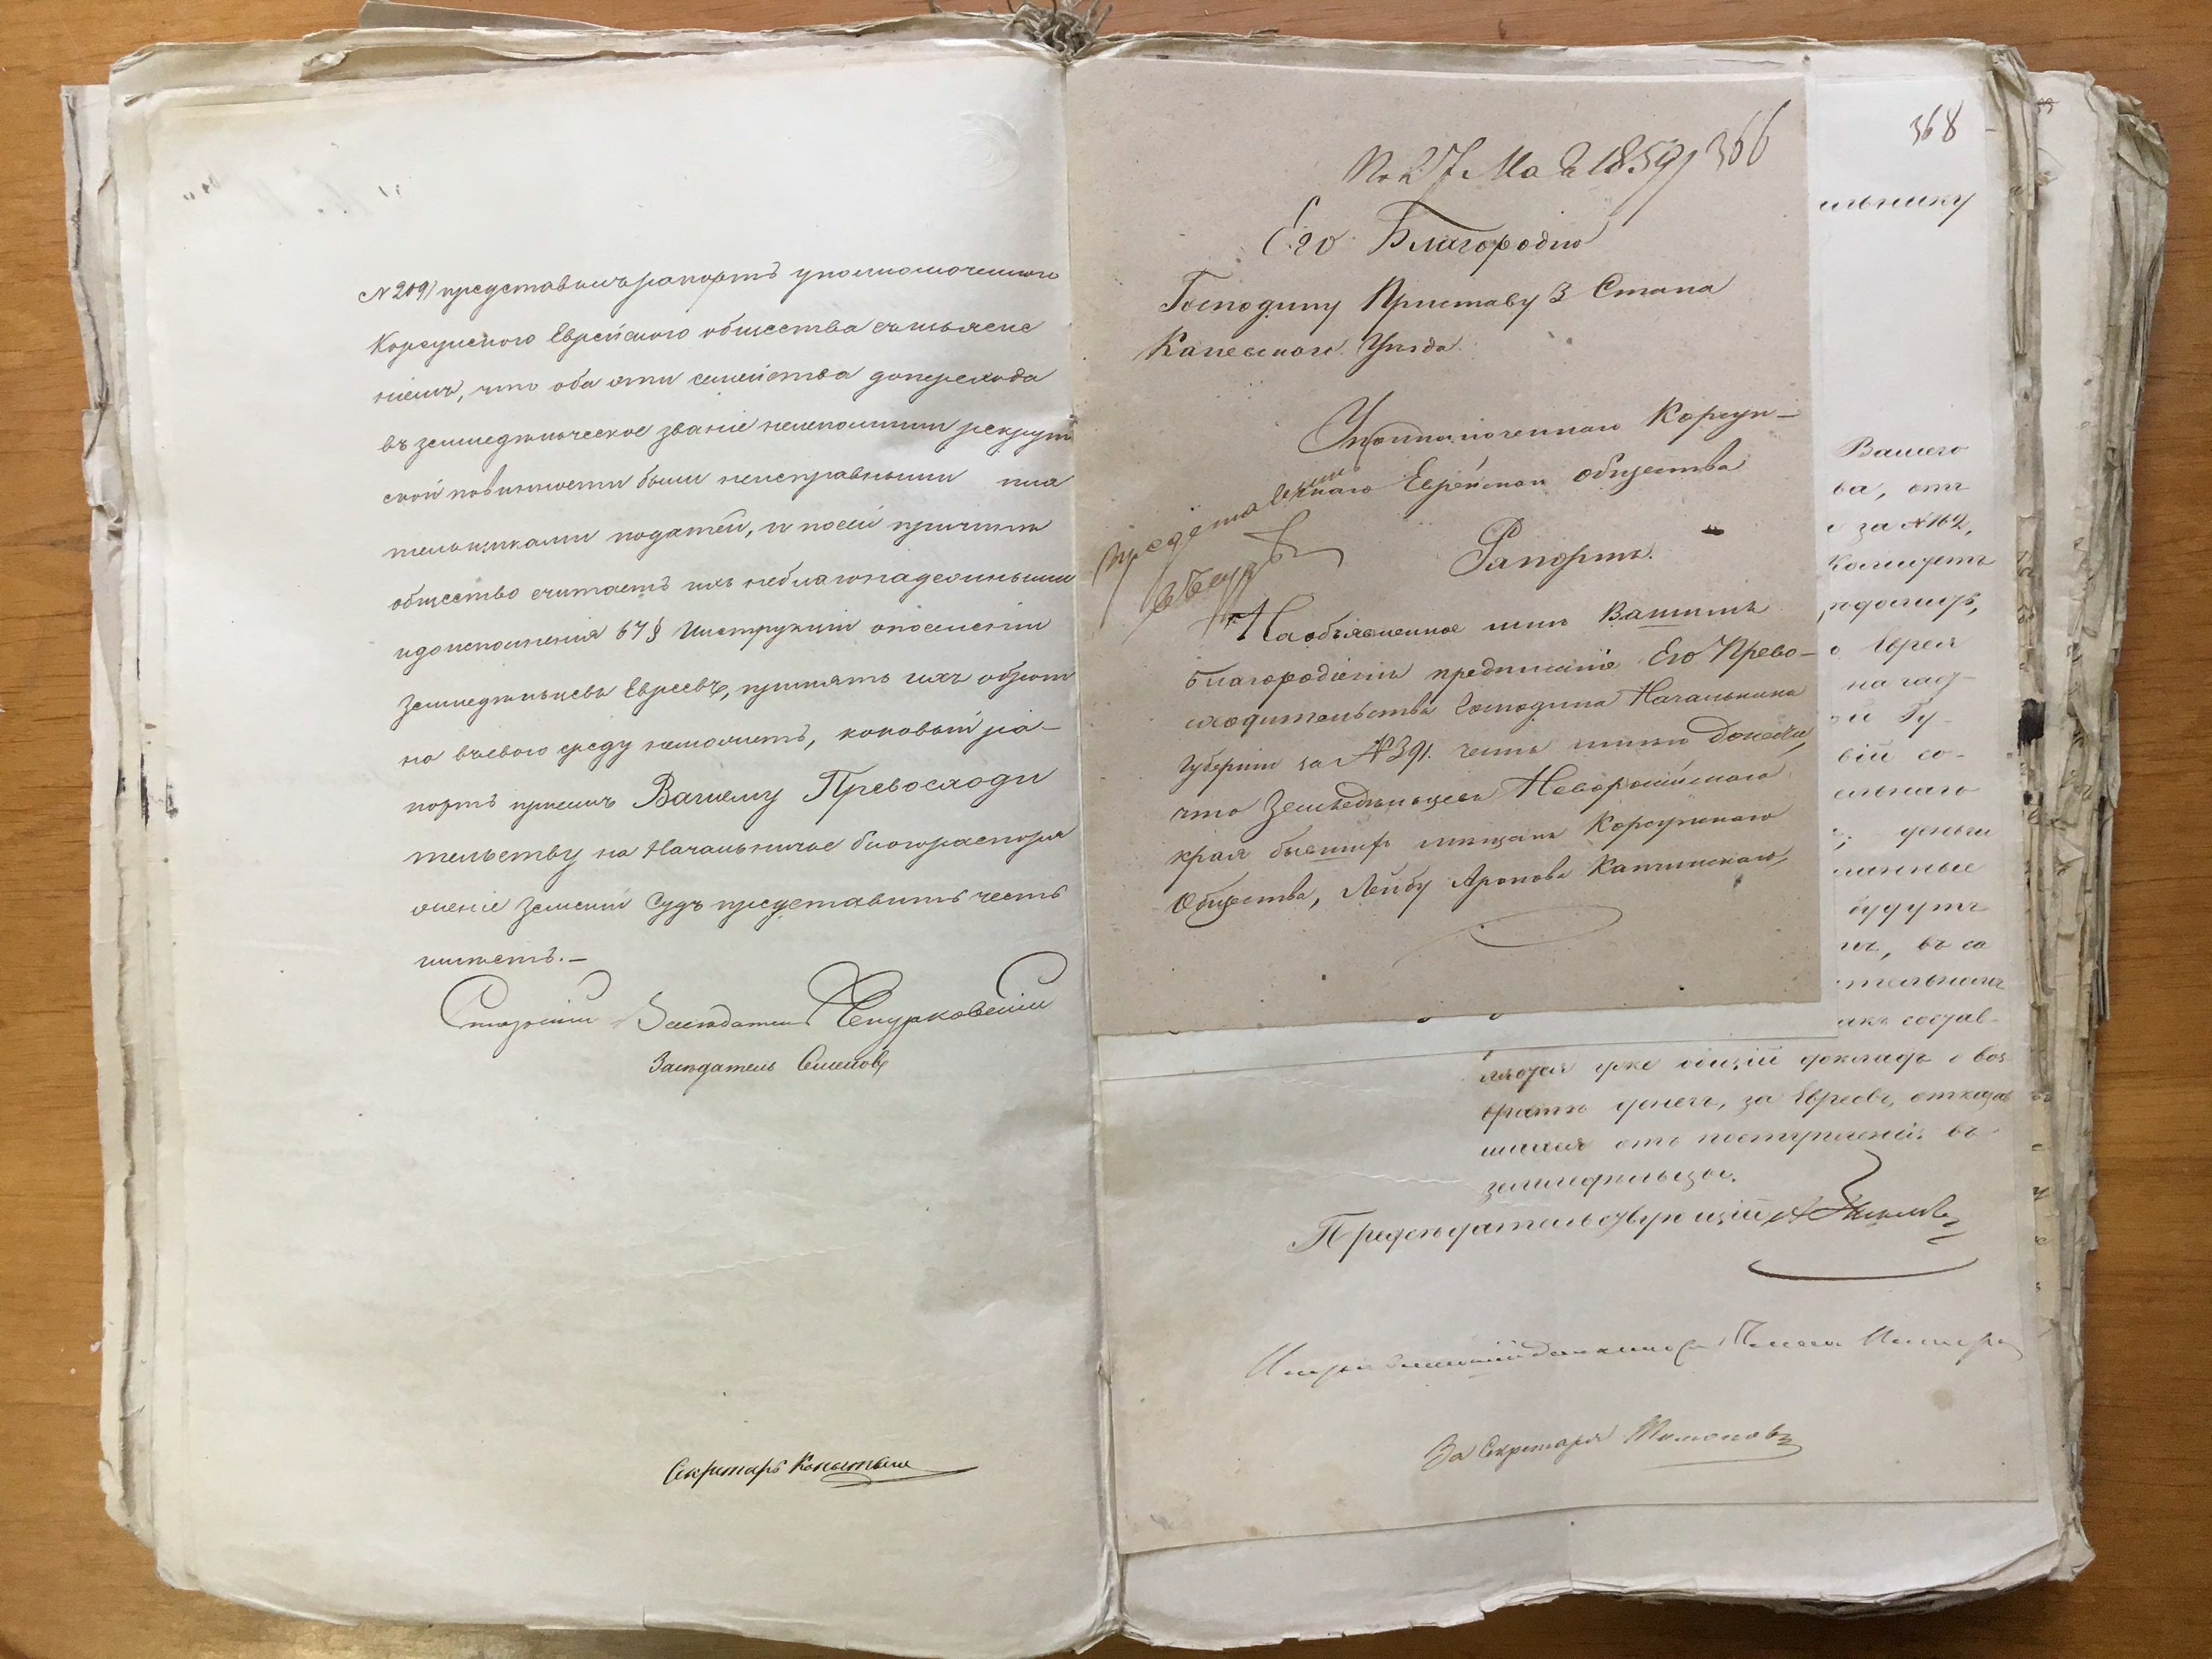 № 209, представилъ рапортъ уполномоченного
Корсунского Еврейского общества съизъясне
ніемъ, что оба эти семейства доперехода
въ земледѣльческое званіе неисполнили рекрут
ской повинности были неисправными пла
тельщиками податей, и посей причинѣ
общество считаетъ ихъ неблагонадежными
идоисполненія 67 § Инструкціи опоселеніи
Земледѣльцевъ Евреевъ, принять ихъ обрат
но въсвою среду неможетъ, каковый ра-
портъ присемъ Вашему Превосходи
тельству на Начальничое благораспоря
женіе Земскій Судъ представить честь
имѣетъ.-
Старшій Засѣдатель
Засѣдатель Семеновъ
Секретарь
368
ильнику
№ 27 Мая 2 1859 366
Его Благородію
Господину Приставу 3 Стана
Каневскаго Уѣзда.
Уполномоченнаго Корсун-
скаго Еврейскаго общества
представленъ
Рапортъ.
Наобъявленное мнѣ Вашимъ
благородіемъ предписаніе Его Прево-
сходительства Господина Начальника
Губерніи за № 391. честь имѣю донести,
что Земледѣльцевъ Новороссійскаго
края бывшихъ мѣщанъ Корсунскаго
Общества, Лейбу Аронова Капинскаго,
Вашего
ва, отъ
за № 162,
Комитетъ
о Еврея
ой Гу-
вій со-
ельнаго
деньги
будутъ
въ со
тельнаго
акъ состав-
ляется уже общій докладъ о воз
вратѣ денегъ, за Евреевъ, отказав
шихся отъ поступленія въ
земледѣльцы.
Предсѣдательствующій
За Секретаря